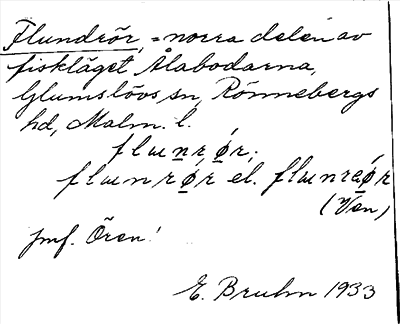 Flundrör, = norra delen av
fiskläget Ålabodarna,
Glumslövs sn, Rönnebergs
hd, Malm. l.
flɯnrǿr,;
flɯnrǿr el. flɯnreǿr
(Ven)
jmf. Ören!
E. Bruhn 1933